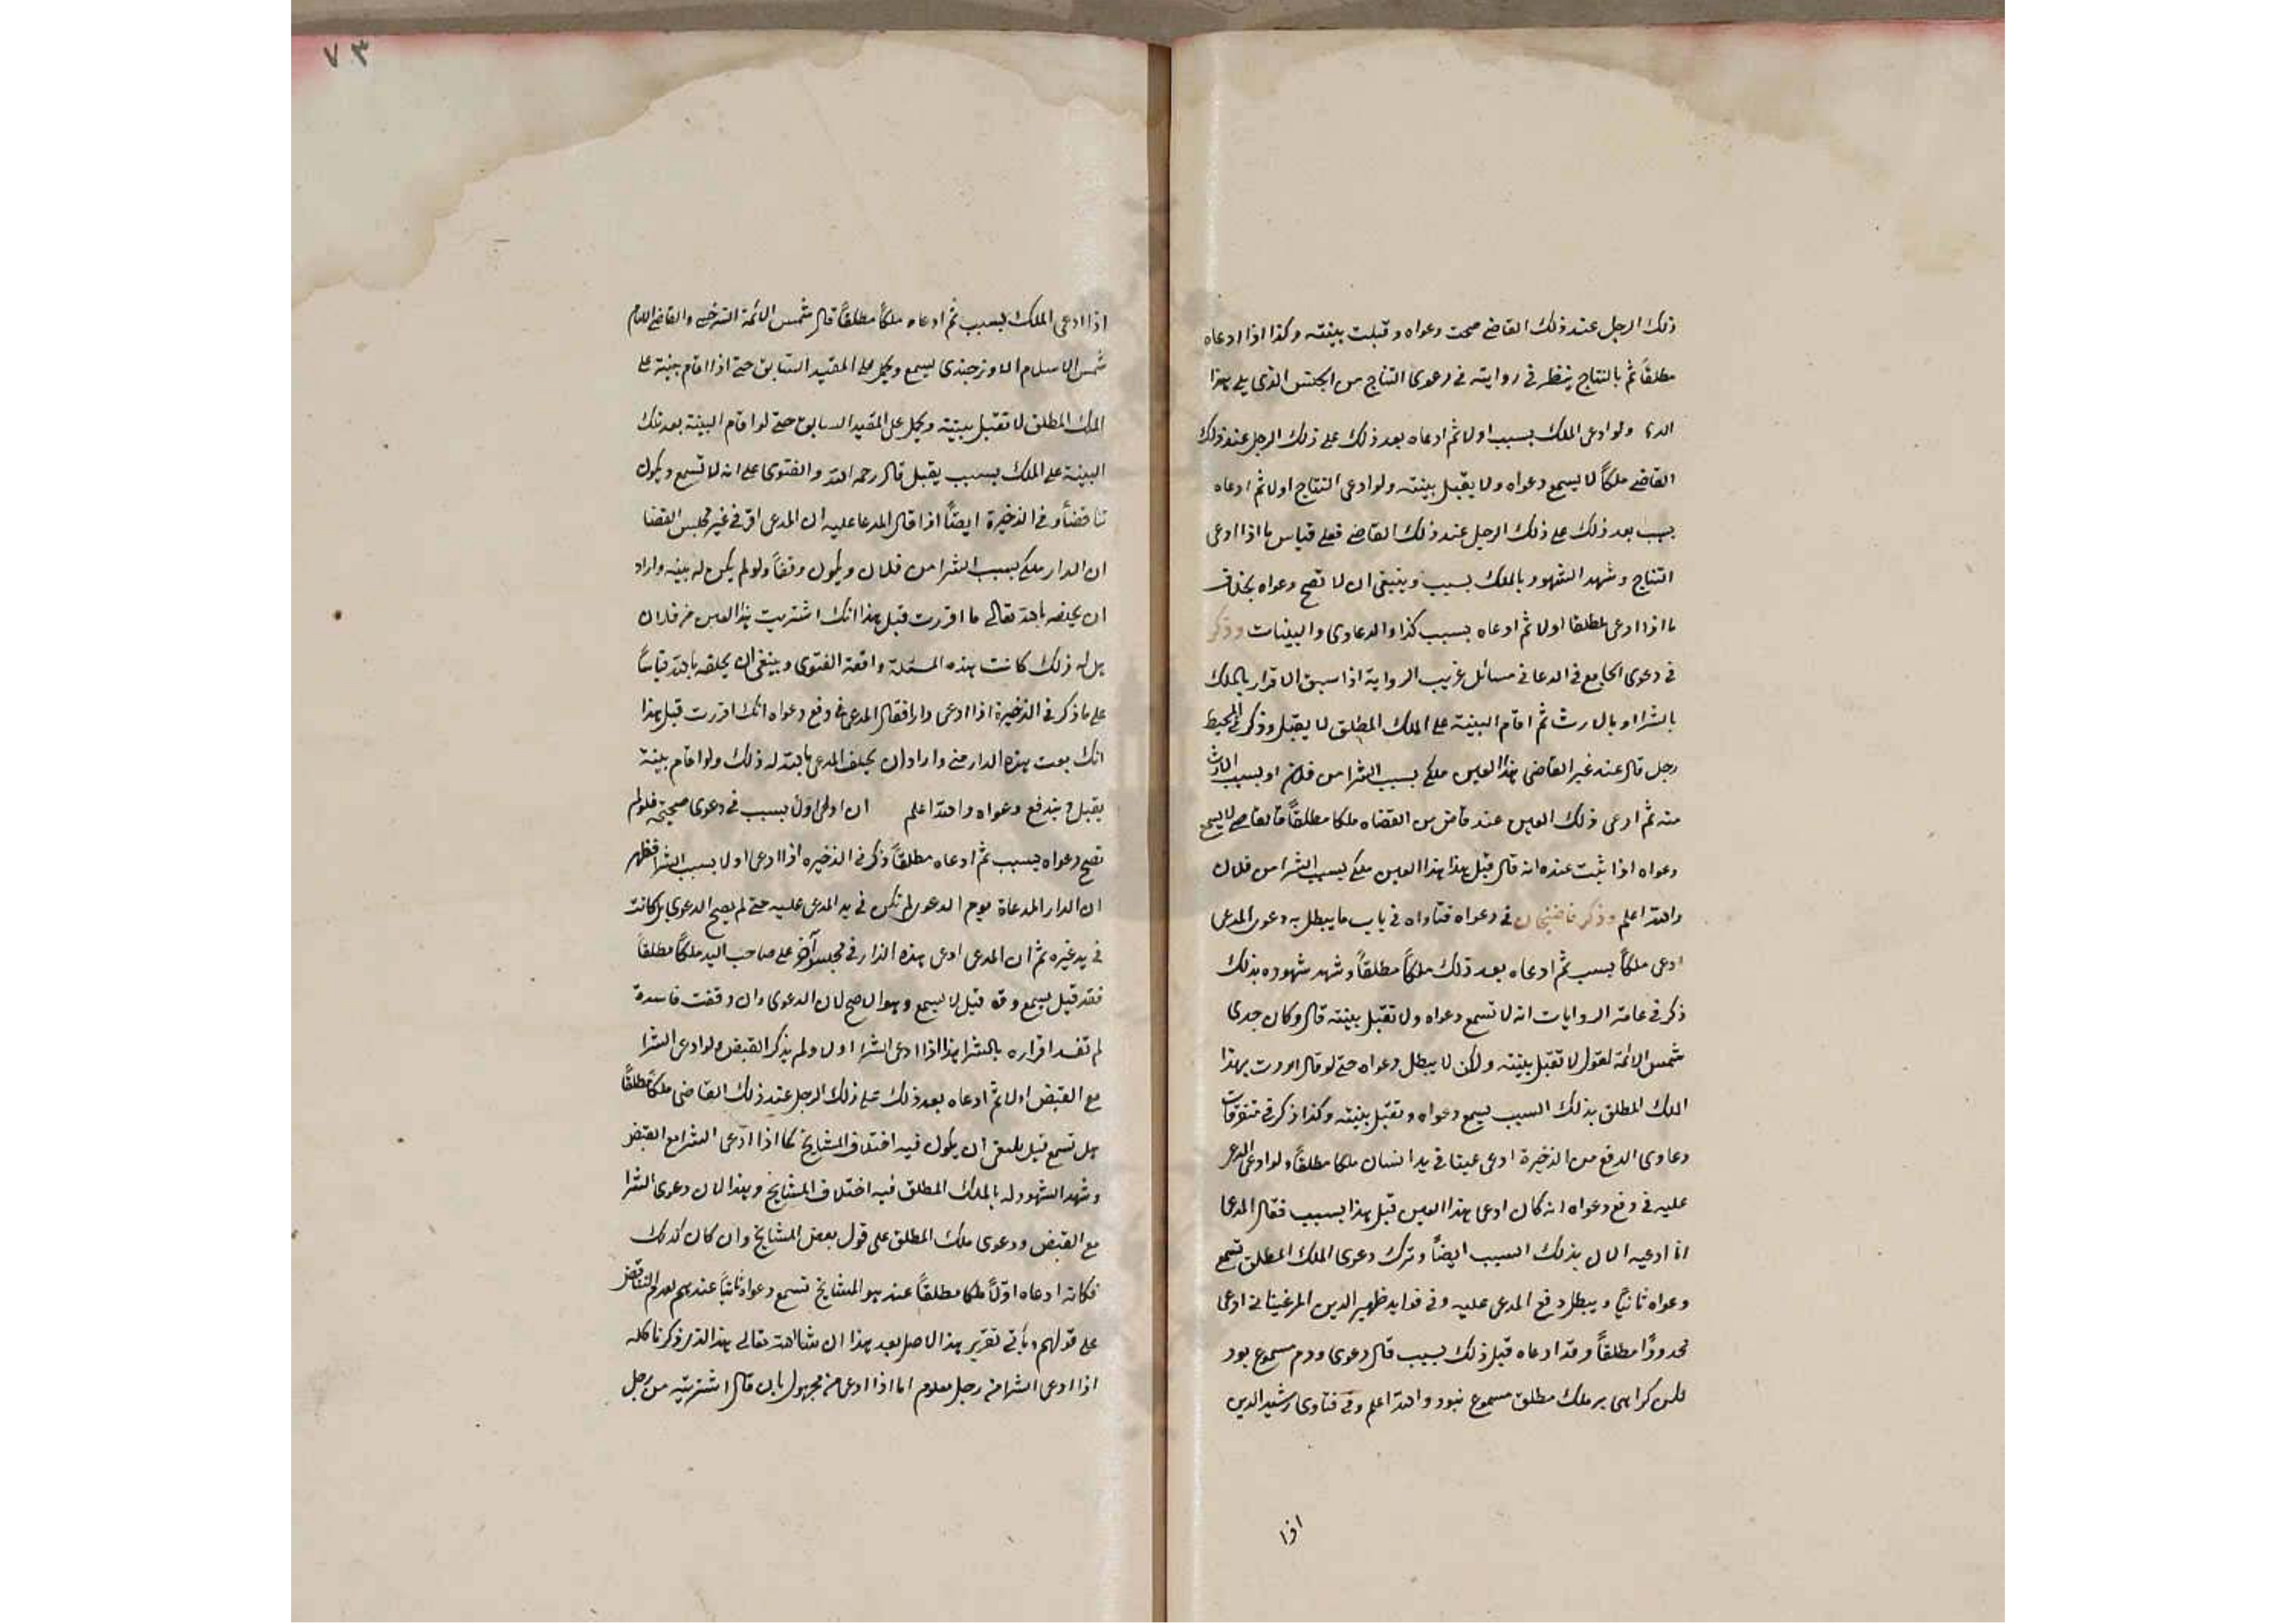 ذلك الرجل عند ذلك القاضي صحت دعواه وقبلت بينته وكذا اذا ادعاه
مطلقاً ثم بالنتاج ينظر في روايته في دعوى النتاج من الجنس الذي يلي هذا
ولو ادعى الملك بسبب اولا ثم ادعاه بعد ذلك على ذلك الرجل عند ذلك
القاضي ملكاً لا يسمع دعواه ولا يقبل بينته ولو ادعى النتاج اولا ثم ادعاه
بسبب بعد ذلك على ذلك الرجل عند ذلك القاضي فعلى قياس ما اذا ادعى
النتاج وشهد الشهود بالملك بسبب وينبغي ان لا تصح دعواه بخلاف
ما اذا ادعى مطلقا اولا ثم ادعاه بسبب كذا والدعاوى والبينات وذكر
في دعوى الجامع في الدعا في مسائل غريب الرواية اذا سبق الاقرار بالملك
بالشرا او بالارث ثم اقام البينة على الملك المطلق لا يقبل وذكر في المحيط
رجل قال عند غير القاضي هذا العين ملكي بسبب الشرا من فلان او بسبب الارث
منه ثم ادعى ذلك العين عند قاض من القضاه ملكا مطلقاً فالقاضي لا يسمع
دعواه اذا ثبت عنده انه قال قبل هذا هذا العين ملكي بسبب الشرا من فلان
والله اعلم وذكر قاضيخان في دعواه فتاواه في باب ما يبطل به دعوى المدعى
ادعى ملكاً بسبب ثم ادعاه بعد ذلك ملكاً مطلقاً وشهد شهوده بذلك
ذكر في عامة الروايات انه لا تسمع دعواه ولا تقبل بينته قال وكان جدى
شمس الائمة لقول لا تقبل بينته ولكن لا يبطل دعواه حتى لو قال اردت بهذا
الملك المطلق بذلك السبب يسمع دعواه وتقبل بينته وكذا ذكر في متفرقات
دعاوى الدفع من الذخيرة ادعى عينا في يد انسان ملكا مطلقاً ولو ادعى المدعى
عليه في دفع دعواه انه كان ادعى هذا العين قبل هذا بسبب فقال المدعا
انا ادعيه الان بذلك السبب ايضاً وترك دعوى الملك المطلق تسمع
دعواه ثانياً ويبطل دفع المدعى عليه وفي فوايد ظهير الدين المرغيناني ادعى
محدودًا مطلقاً وقد ادعاه قبل ذلك بسبب قال دعوى ودم مسموع بود
لكن كراهى بر ملك مطلق مسموع نبود والله اعلم وفي فتاوى رشيد الدين
اذا
٧٣
اذا ادعى الملك بسبب ثم ادعاه ملكاً مطلقاً قال شمس الائمة السرخسي والقاضي الامام
شمس الاسلام الاوزجندى يسمع ويحمل على المقيد السابق حتى اذا اقام بينة على
الملك المطلق لا تقبل بينته ويحمل على المقيد السابق حتى لو اقام البينة بعد تلك
البينة على الملك بسبب يقبل قال رحمه الله والفتوى على انه لا تسمع ويكون
تناقضاً وفي الذخيرة ايضاً اذا قال المدعا عليه ان المدعى اقر في غير مجلس القضا
ان الدار ملكي بسبب الشرا من فلان ويكون دفعاً ولو لم يكن له بينه واراد
ان يحلفه بالله تعالى ما اقررت قبل هذا انك اشتريت هذا العين من فلان
هل له ذلك كانت هذه المسئلة واقعة الفتوى وينبغي ان يحلفه بالله قياساً
على ما ذكر في الذخيرة اذا ادعى دارا فقال المدعى في دفع دعواه انك اقررت قبل هذا
انك بعت هذه الدار مني واراد ان يحلف المدعى بالله له ذلك ولو اقام بينة
يقبل ويندفع دعواه والله اعلم ان ادعى اول بسبب في دعوى صحيحة فلو لم
تصح دعواه بسبب ثم ادعاه مطلقاً ذكر في الذخيره اذا ادعى اولا بسبب الشرا فظهر
ان الدار المدعاة يوم الدعوى لم تكن في يد المدعى عليه حتى لم يصح الدعوى بل كانت
في يد غيره ثم ان المدعى ادعى هذه الدار في مجلس آخر على صاحب اليد ملكاً مطلقاً
فقد قيل يسمع وقد قيل لا يسمع وهو الاصح لان الدعوى وان وقعت فاسدة
لم تفسد اقراره بالشرا هذا اذا ادعى الشرا اولا ولم يذكر القبض ولو ادعى الشرا
مع القبض اولا ثم ادعاه بعد ذلك على ذلك الرجل عند ذلك القاضى ملكا مطلقاً
هل تسمع قيل ينبغي ان يكون فيه اختلاف المشايخ كما اذا ادعى الشرا مع القبض
وشهد الشهود له بالملك المطلق فيه اختلاف المشايخ وهذا لان دعوى الشرا
مع القبض ودعوى ملك المطلق على قول بعض المشايخ وان كان كذلك
فكانه ادعاه اوّلاً ملكا مطلقاً عند هو المشايخ تسمع دعواه ثانياً عندهم لعدم التناقض
على قولهم ويأتي تقرير هذا الاصل بعد هذا ان شا الله تعالى هذا الذى ذكرنا كله
اذا ادعى الشرا من رجل معلوم اما اذا ادعى من مجهول بان قال اشتريته من رجل